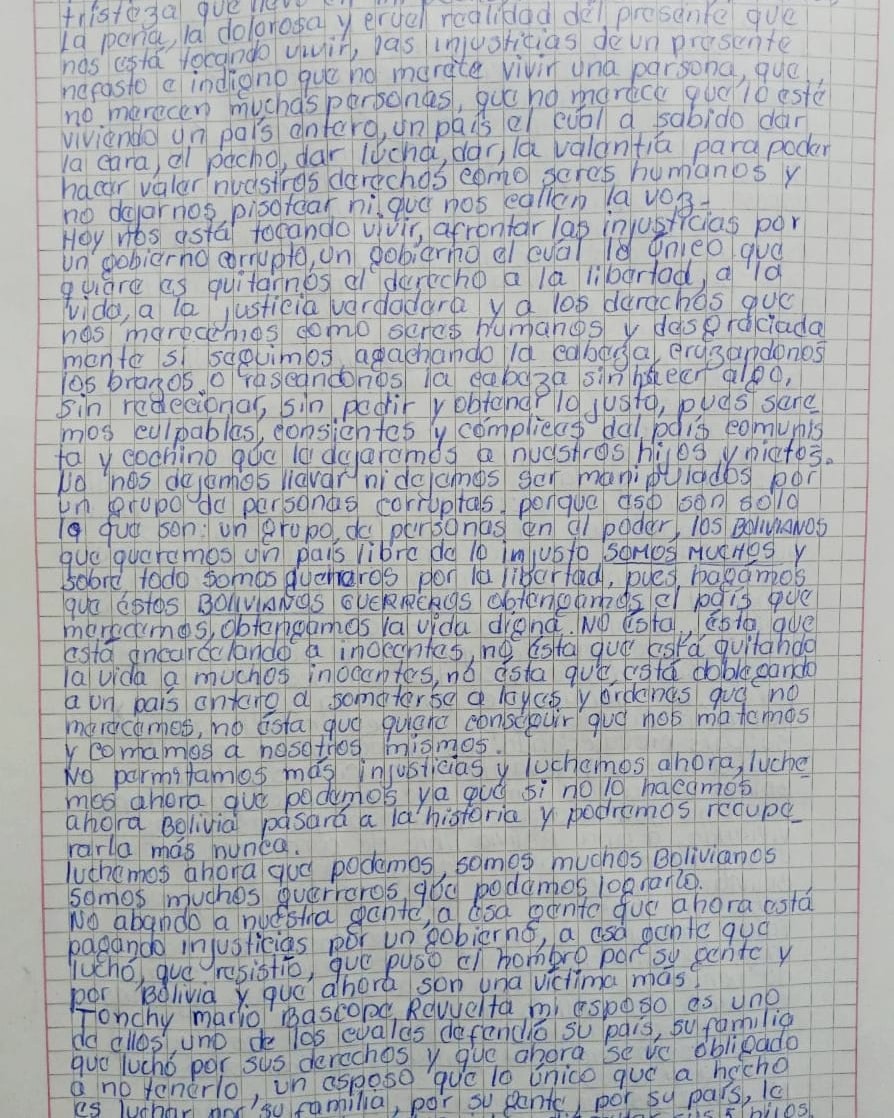 tristeza que
la pena, la dolorosa y cruel realidad del presente que
nos está tocando vivir, las injusticias de un presente
nefasto e indigno que no merece vivir una persona, que
no merecen muchas personas, que no merece que lo esté
viviendo un país entero, un país el cual a sabido dar
la cara, el pecho, dar lucha, dar, la valentía para poder
hacer valer nuestros derechos como seres humanos y
no dejarnos pisotear ni que nos callen la voz.
Hoy nos está tocando vivir, afrontar las injusticias por
un gobierno corrupto, un gobierno el cual lo único que
quiere es quitarnos el derecho a la libertad, a la
vida, a la justicia verdadera y a los derechos que
nos merecemos como seres humanos y desgraciada
mente si seguimos agachando la cabeza, cruzandonos
los brazos o rascandonos la cabeza sin hacer algo,
sin reaccionar, sin pedir y obtener lo justo, pues sere
mos culpables, consientes y complices del país comunis
ta y cochino que le dejaremos a nuestros hijos y nietos.
No nos dejemos llevar ni dejemos ser manipulados por
un grupo de personas corruptas, porque eso son solo
lo que son: un grupo de personas en el poder, los BOLIVIANOS
que queremos un país libre de lo injusto SOMOS MUCHOS y
sobre todo somos guerreros por la libertad, pues hagamos
que éstos BOLIVIANOS GUERREROS obtengamos el país que
merecemos, obtengamos la vida digna. NO ésta, ésta que
está encarcelando a inocentes, no ésta que está quitando
la vida a muchos inocentes, no ésta que está doblegando
a un país entero a someterse a leyes y ordenes que no
merecemos, no ésta que quiere conseguir que nos matemos
y comamos a nosotros mismos.
No permitamos más injusticias y luchemos ahora, luche
mos ahora que podemos ya que si no lo hacemos
ahora Bolivia pasará a la historia y podremos recupe
rarla más nunca.
luchemos ahora que podemos, somos muchos Bolivianos
somos muchos guerreros que podemos lograrlo.
No abando a nuestra gente, a esa gente que ahora está
pagando injusticias por un gobierno, a esa gente que
luchó, que resistió, que puso el hombro por su gente y
por Bolivia y que ahora son una victima más.
Tonchy mario Bascope Revuelta mi esposo es uno
de ellos, uno de los cuales defendió su país, su familia
que luchó por sus derechos y que ahora se ve obligado
a no tenerlo, un esposo que lo único que a hecho
es luchar por su familia, por su gente, por su país, la
hijos